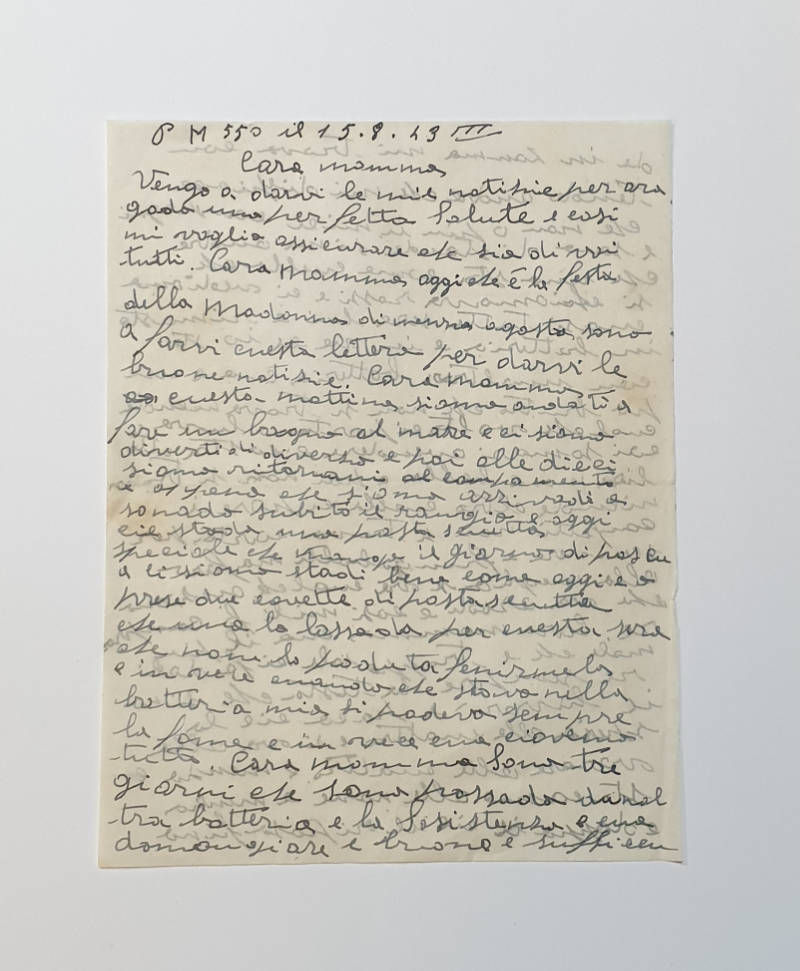 P M 550 il 15.8.43 III
Cara mamma
Vengo a darvi le mie notisie per ora
godo una perfetta Salute e cosi
mi voglio assicurare che sia di voi
tutti. Cara Mamma oggi che è la festa
della Madonna di menso agosto sono
a farvi cuesta lettera per darvi le
buone notisie. Cara Mamma
cuesta mattina siamo andati a
fare un bagno al mare e ci siamo
divertidi diverso e poi alle dieci
siamo ritornani al compamento
e apena che siamo arrivadi a
sonado subito il rangio e oggi
cie stada una pasta sciutta
speciale che mango il giorno di pascu
a ci siamo stadi bene come oggi e o
prese due covette di pasta sciutta
che una lo lassada per cuesta sera
che non lo poduta fenirmela
e in vece cuando che stavo nella
batteria mia si padeva sempre
la fame e in vece cua ciovemo
tutto. Cara Mamma Sono tre
giorni che sono passado dunal
tra batteria e la Sosistenza e cua
da mangiare e buono e sufficen